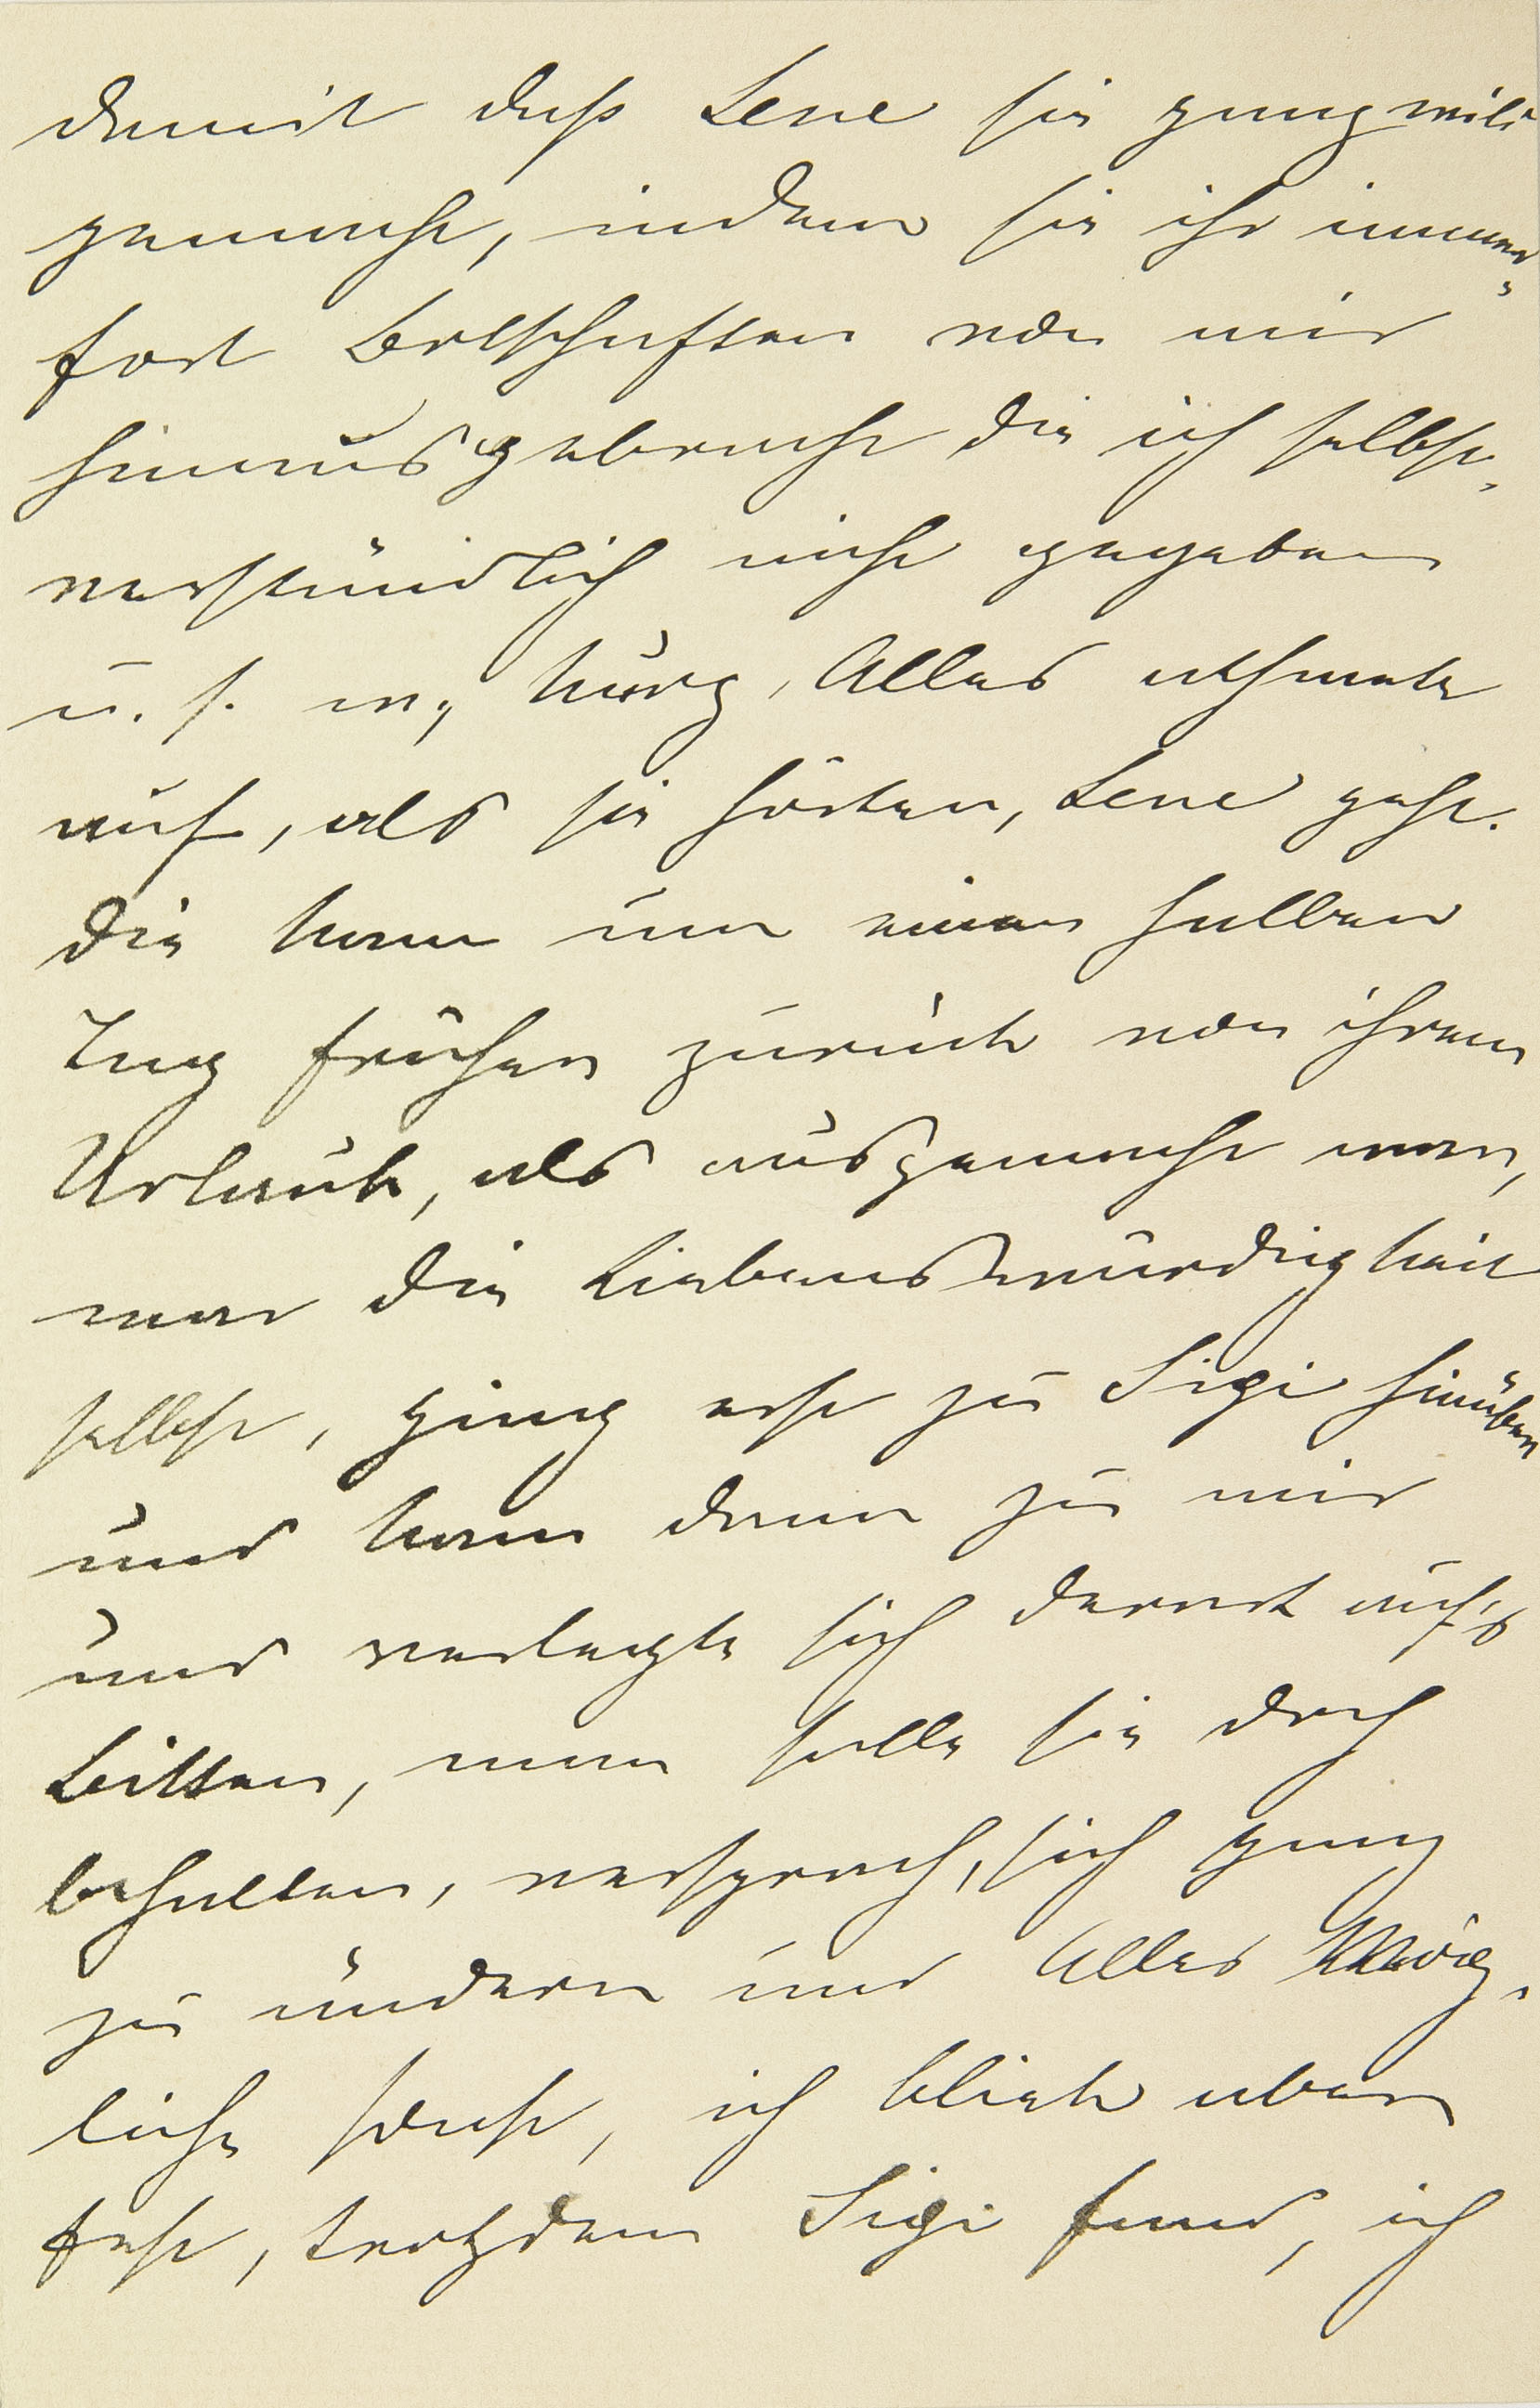 damit daß Lene sie ganz wild
gemacht, indem sie ihr immer-
fort Botschaften von mir
hinausgebracht die ich selbst-
verständlich nicht gegeben
u. s. w., kurz, Alles athmete
auf, als sie hörten, Lene geht.
Die kam nun einen halben
Tag früher zurück von ihrem
Urlaub, als ausgemacht war,
war die Liebenswürdigkeit
selbst, ging erst zu Sigi hinüber
und kam dann zu mir
und verlegte sich derart auf's
Bitten, man solle sie doch
behalten, versprach, sich ganz
zu ändern und Alles Mög-
liche sonst, ich blieb aber
fest, trotzdem Sigi fand, ich